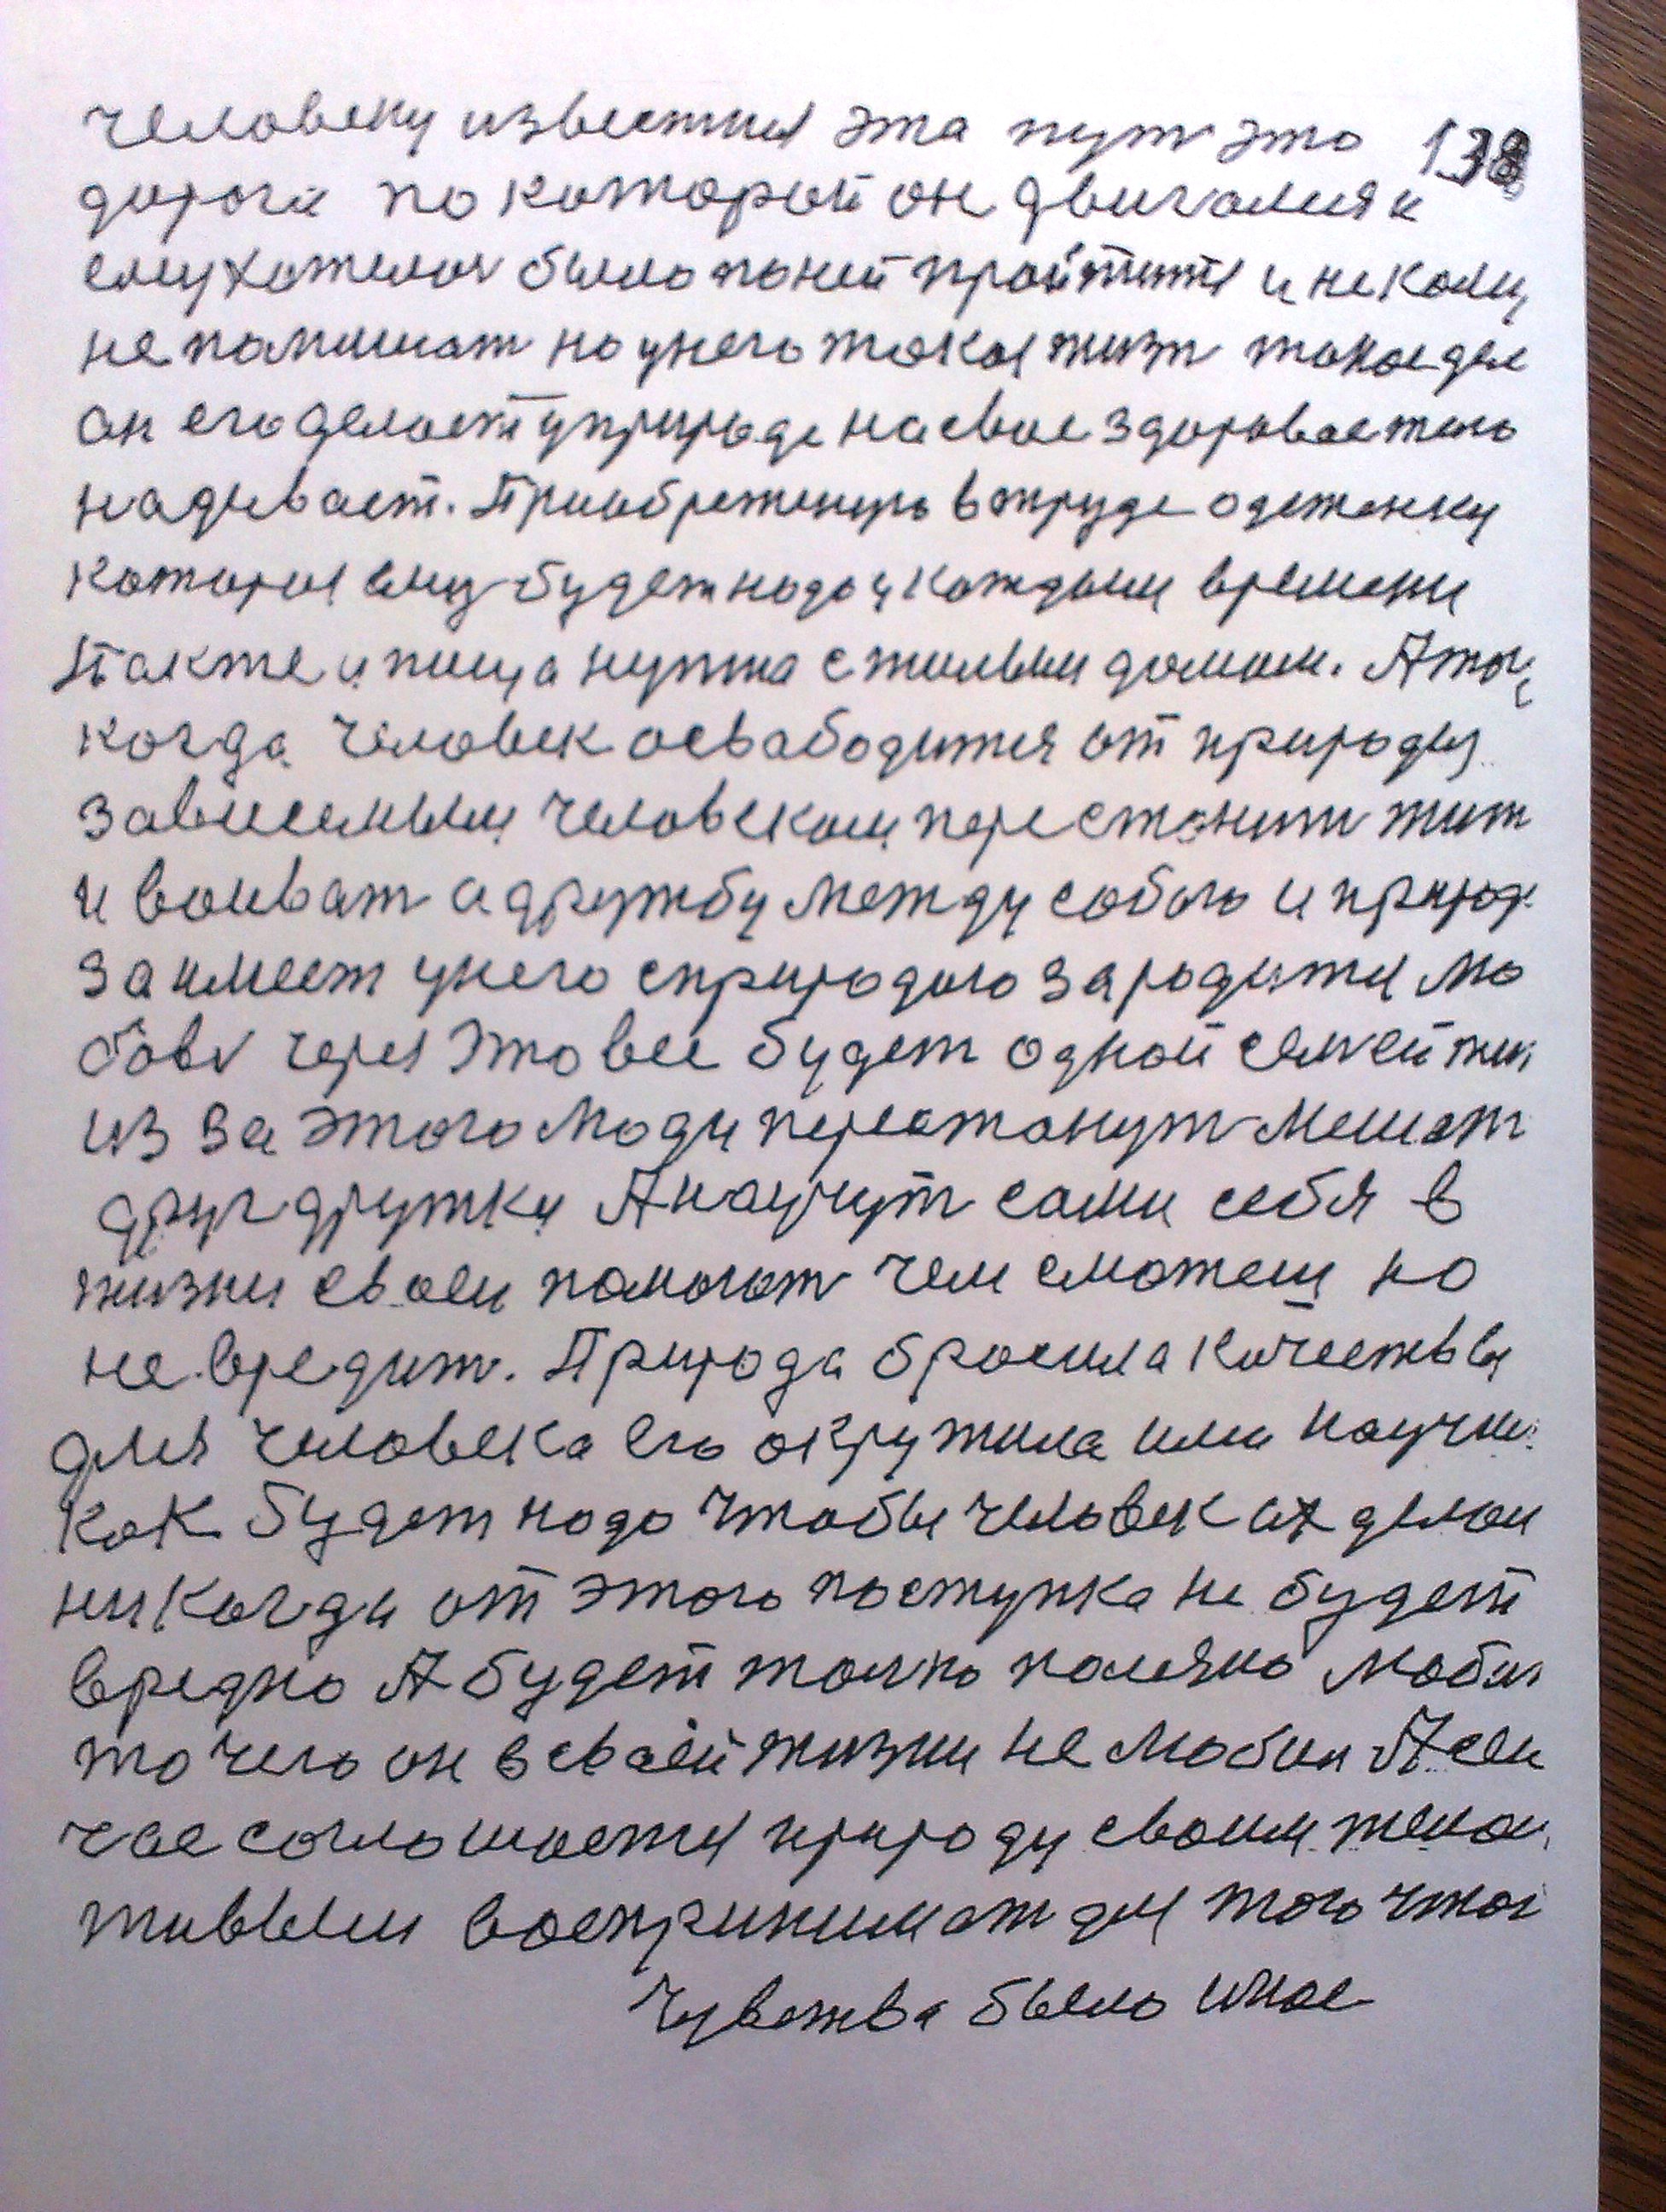 человеку известная эта путь это 138
дорога по которой он двигался и
ему хотелось было по ней пройтится и некому
не помешат но у него такая жизн такое дело
он его делает у природе на свое здоровое тело
надевает. Приобретеную в труде одеженку
которая ему будет надо у каждым времени
также и пища нужна с жилым домом. А
когда человек освабодится от природы
зависемым человеком перестанит жит
и воиват а дружбу между собою и природ
заимеет у него с природою зародится лю
бовь через это все будет одной семьей жи
из за этого люди перестанут мешат
друг дружки А научут сами себя в
жизни своеи помогат чем сможеш но
не вредит. Природа бросила качествы
для человека его окружила или научи
как будет надо чтобы человек их делаи
никогда от этого поступка не будет
вредно А будет толко полезно
то чего он в своей жизни не А сеи
час соглошается природу своим телом
живым воспринимат для того чтоб
чувства было иное